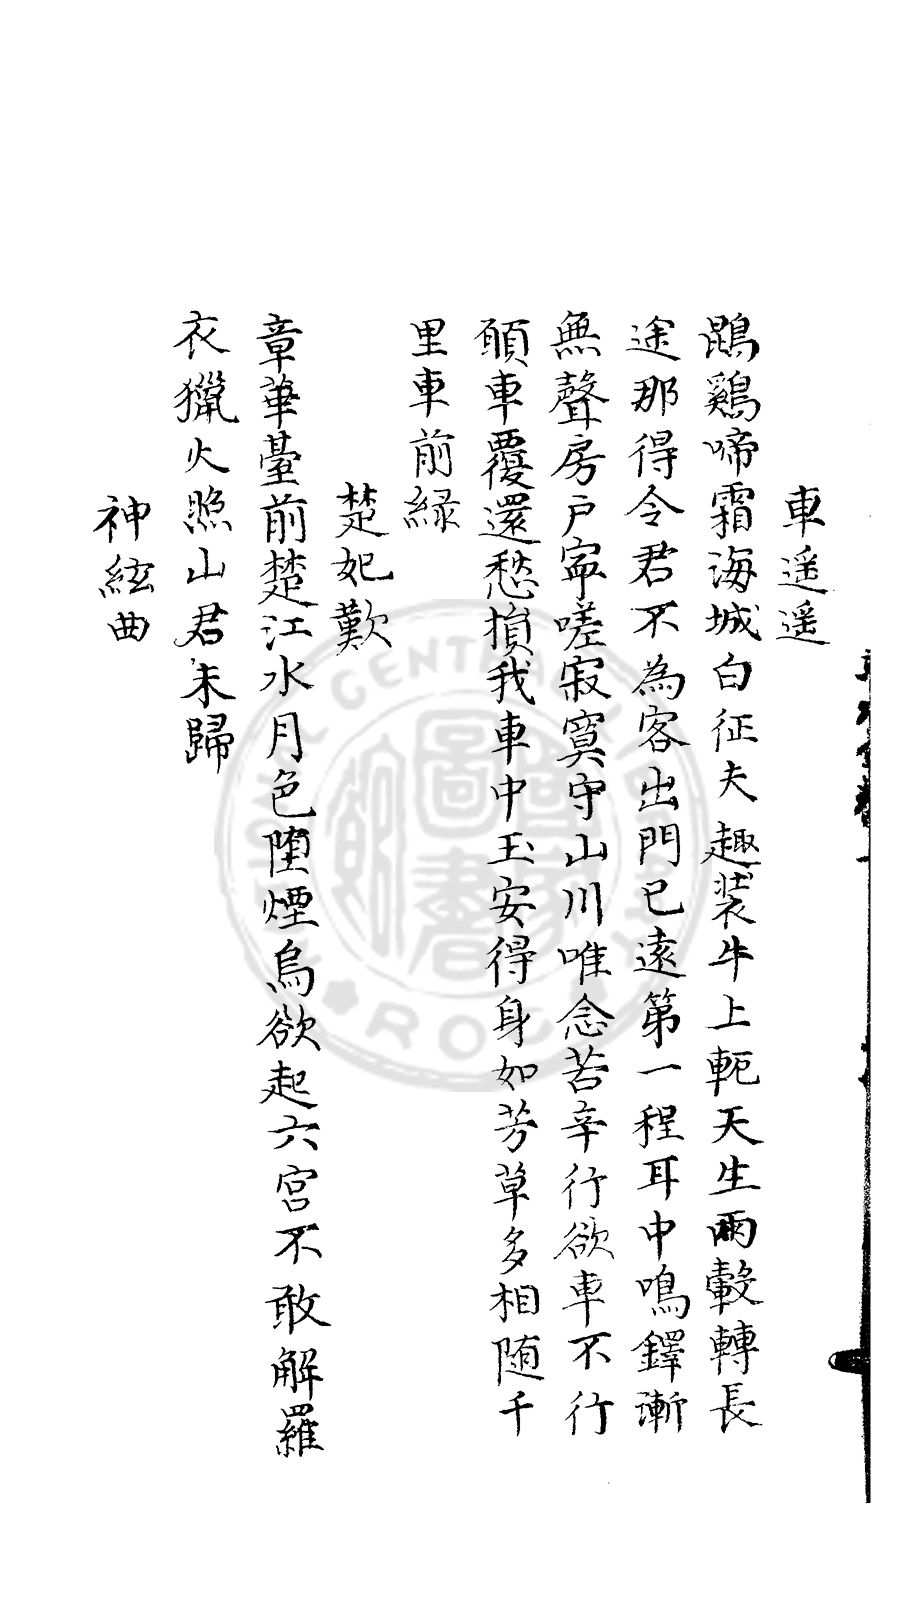 車遥遥
鵾鷄啼霜海城白征夫趣装牛上軛天生兩轂轉長
途那得令君不為客出門已遠第一程耳中鳴鐸漸
無聲房戶寧嗟寂寞守山川唯念苦辛行欲車不行
願車覆還愁損我車中玉安得身如芳草多相随千
里車前緑
楚妃歎
章華臺前楚江水月色堕煙烏欲起六宫不敢解羅
衣獵火照山君未歸
神絃曲
NATIONAL CENTRAL LIBRARY R.O.C.
國家圖書館